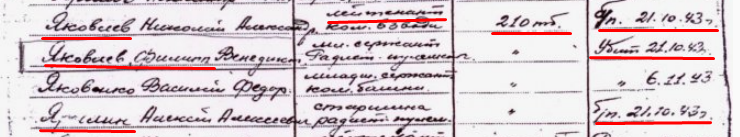 лейтенант
Яковлев Николай Александр. ком. взвода 210 тб. б/п. 21.10.43г.
мл. сержант
Яковлев Филипп Венедикт. Радист. пулеметч. " Убит 21.10.43.
младш. сержант
Яковенко Василий Федор. ком. башни. " " 6.11.43
старшина
Алексей Алексеевич радист пулем. " б/п. 21.10.43г